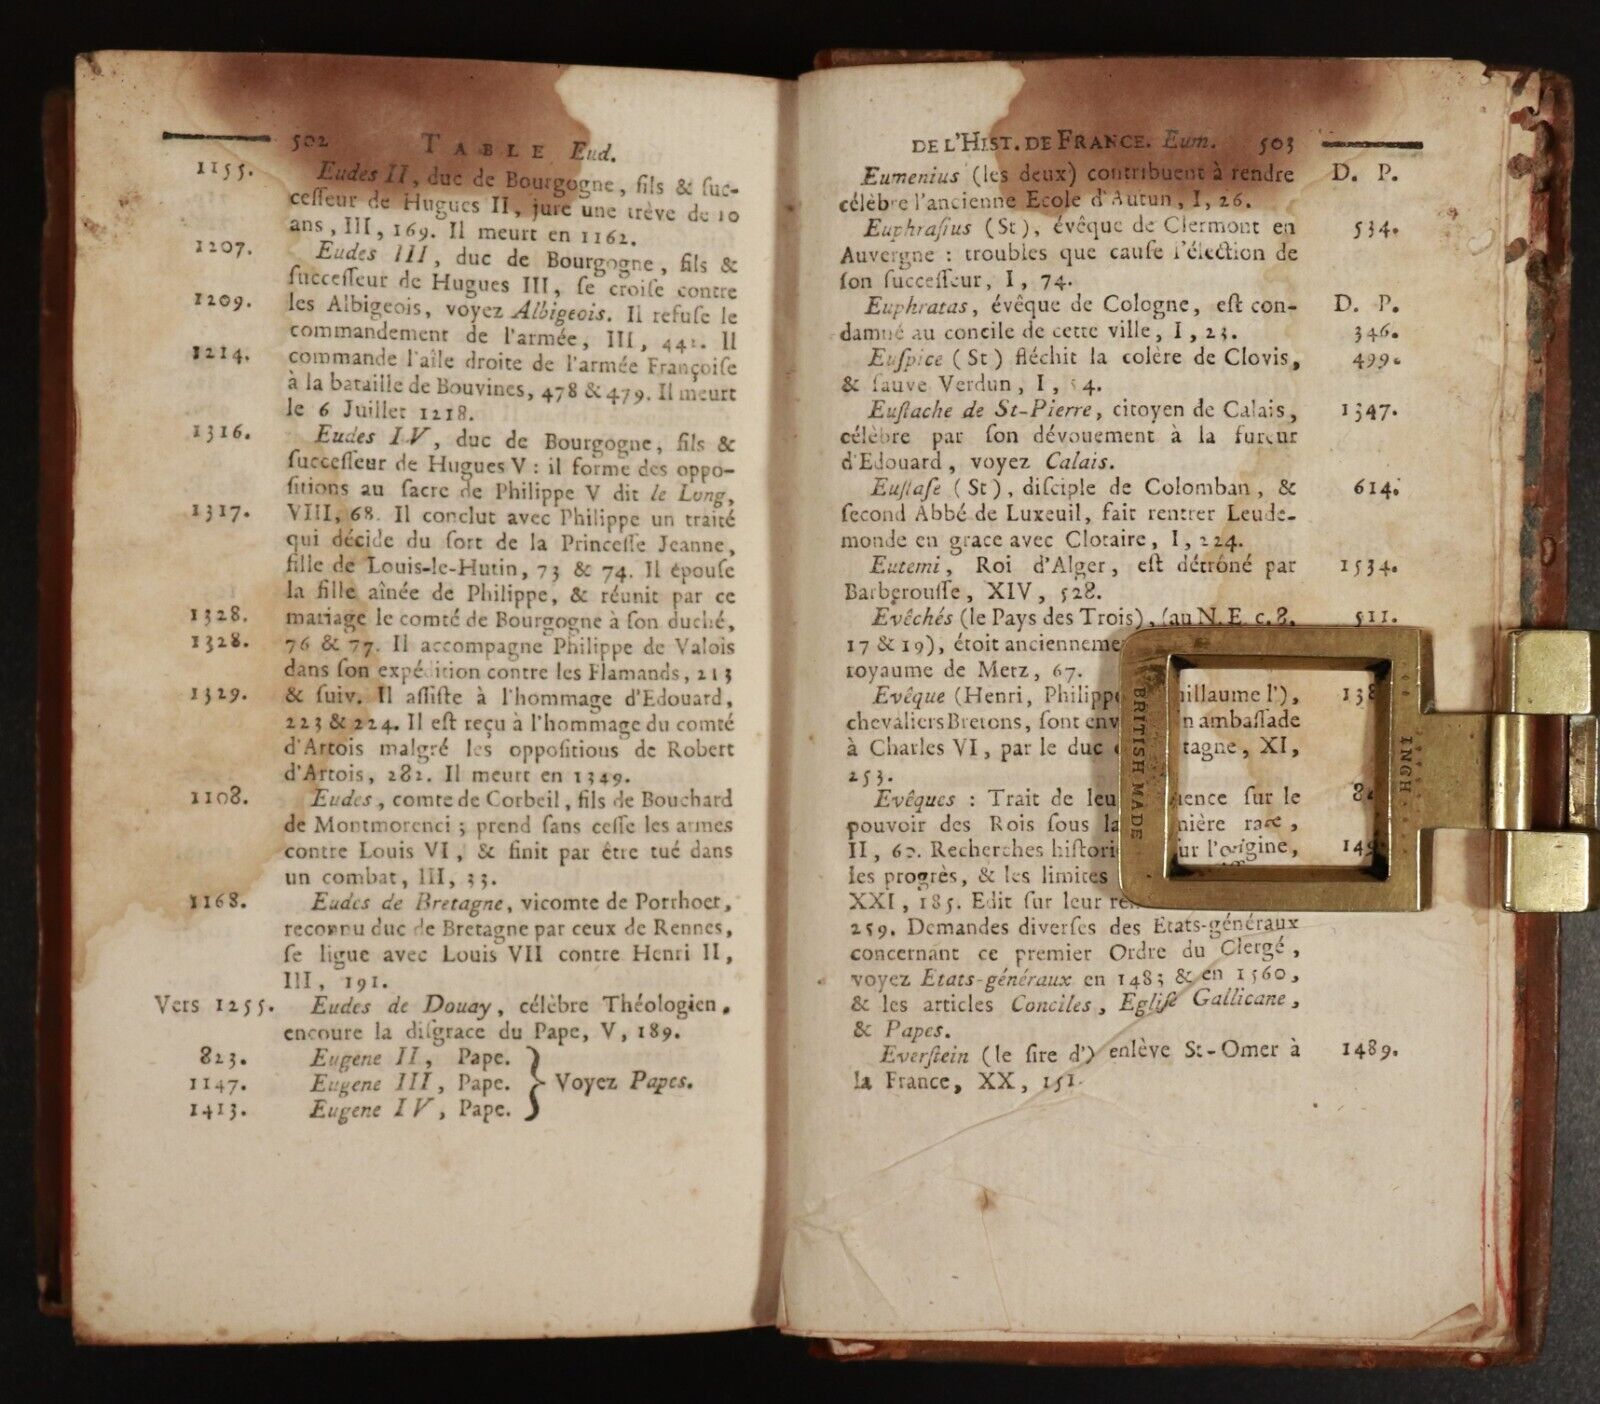 502 TABLE Eud.
1155. Eudes II, duc de Bourgogne, fils & ſuc-
ceſſeur de Hugues II, jure une trève de 10
ans, III, 169. Il meurt en 1162.
1207. Eudes III, duc de Bourgogne, fils &
ſucceſſeur de Hugues III, ſe croiſe contre
1209. les Albigeois, voyez Albigeois. Il refuſe le
commandement de l'armée, III, 442. Il
1214. commande l'aîle droite de l'armée Françoiſe
à la bataille de Bouvines, 478 & 479. Il meurt
le 6 Juillet 1218.
1316. Eudes IV, duc de Bourgogne, fils &
ſucceſſeur de Hugues V : il forme des oppo-
ſitions au ſacre de Philippe V dit le Long,
1317. VIII, 68. Il conclut avec Philippe un traité
qui décide du ſort de la Princeſſe Jeanne,
fille de Louis-le-Hutin, 73 & 74. Il épouſe
la fille aînée de Philippe, & réunit par ce
1328. mariage le comté de Bourgogne à ſon duché,
1328. 76 & 77. Il accompagne Philippe de Valois
dans ſon expédition contre les Flamands, 213
1329. & ſuiv. Il aſſiſte à l'hommage d'Edouard,
223 & 224. Il eſt reçu à l'hommage du comté
d'Artois malgré les oppoſitious de Robert
d'Artois, 282. Il meurt en 1349.
1108. Eudes, comte de Corbeil, fils de Bouchard
de Montmorenci ; prend ſans ceſſe les armes
contre Louis VI, & finit par être tué dans
un combat, III, 33.
1168. Eudes de Bretagne, vicomte de Porrhoet,
reconnu duc de Bretagne par ceux de Rennes,
ſe ligue avec Louis VII contre Henri II,
III, 191.
Vers 1255. Eudes de Douay, célèbre Théologien,
encoure la diſgrace du Pape, V, 189.
823. Eugene II, Pape.
1147. Eugene III, Pape. } Voyez Papes.
1413. Eugene IV, Pape.
DE L'HIST. DE FRANCE. Eum. 503
Eumenius (les deux) contribuent à rendre D. P.
célèbre l'ancienne Ecole d'Autun, I, 26.
Euphraſius (St), évêque de Clermont en 534.
Auvergne : troubles que cauſe l'élection de
ſon ſucceſſeur, I, 74.
Euphratas, évêque de Cologne, eſt con- D. P.
damné au concile de cette ville, I, 23. 346.
Euſpice (St) fléchit la colère de Clovis, 499.
& ſauve Verdun, I, 4.
Euſtache de St-Pierre, citoyen de Calais, 1347.
célèbre par ſon dévouement à la fureur
d'Edouard, voyez Calais.
Euſtaſe (St), diſciple de Colomban, & 614.
ſecond Abbé de Luxeuil, fait rentrer Leude-
monde en grace avec Clotaire, I, 224.
Eutemi, Roi d'Alger, eſt détrôné par 1534.
Barberouſſe, XIV, 528.
Evêchés (le Pays des Trois), (au N. E. c. 8. 511.
17 & 19), étoit ancienneme
royaume de Metz, 67.
Evêque (Henri, Philippe illaume l'), 138
chevaliers Bretons, ſont env n ambaſſade
à Charles VI, par le duc tagne, XI,
253.
Evêques : Trait de leu ience ſur le 8
pouvoir des Rois ſous la nière race,
II, 60. Recherches hiſtori ur l'origine, 149
les progrès, & les limites
XXI, 185. Edit ſur leur ré
259. Demandes diverſes des Etats-généraux
concernant ce premier Ordre du Clergé,
voyez Etats-généraux en 1483 & en 1560,
& les articles Conciles, Egliſe Gallicane,
& Papes.
Everſtein (le ſire d') enlève St-Omer à 1489.
la France, XX, 151.
BRITISH MADE
INGH